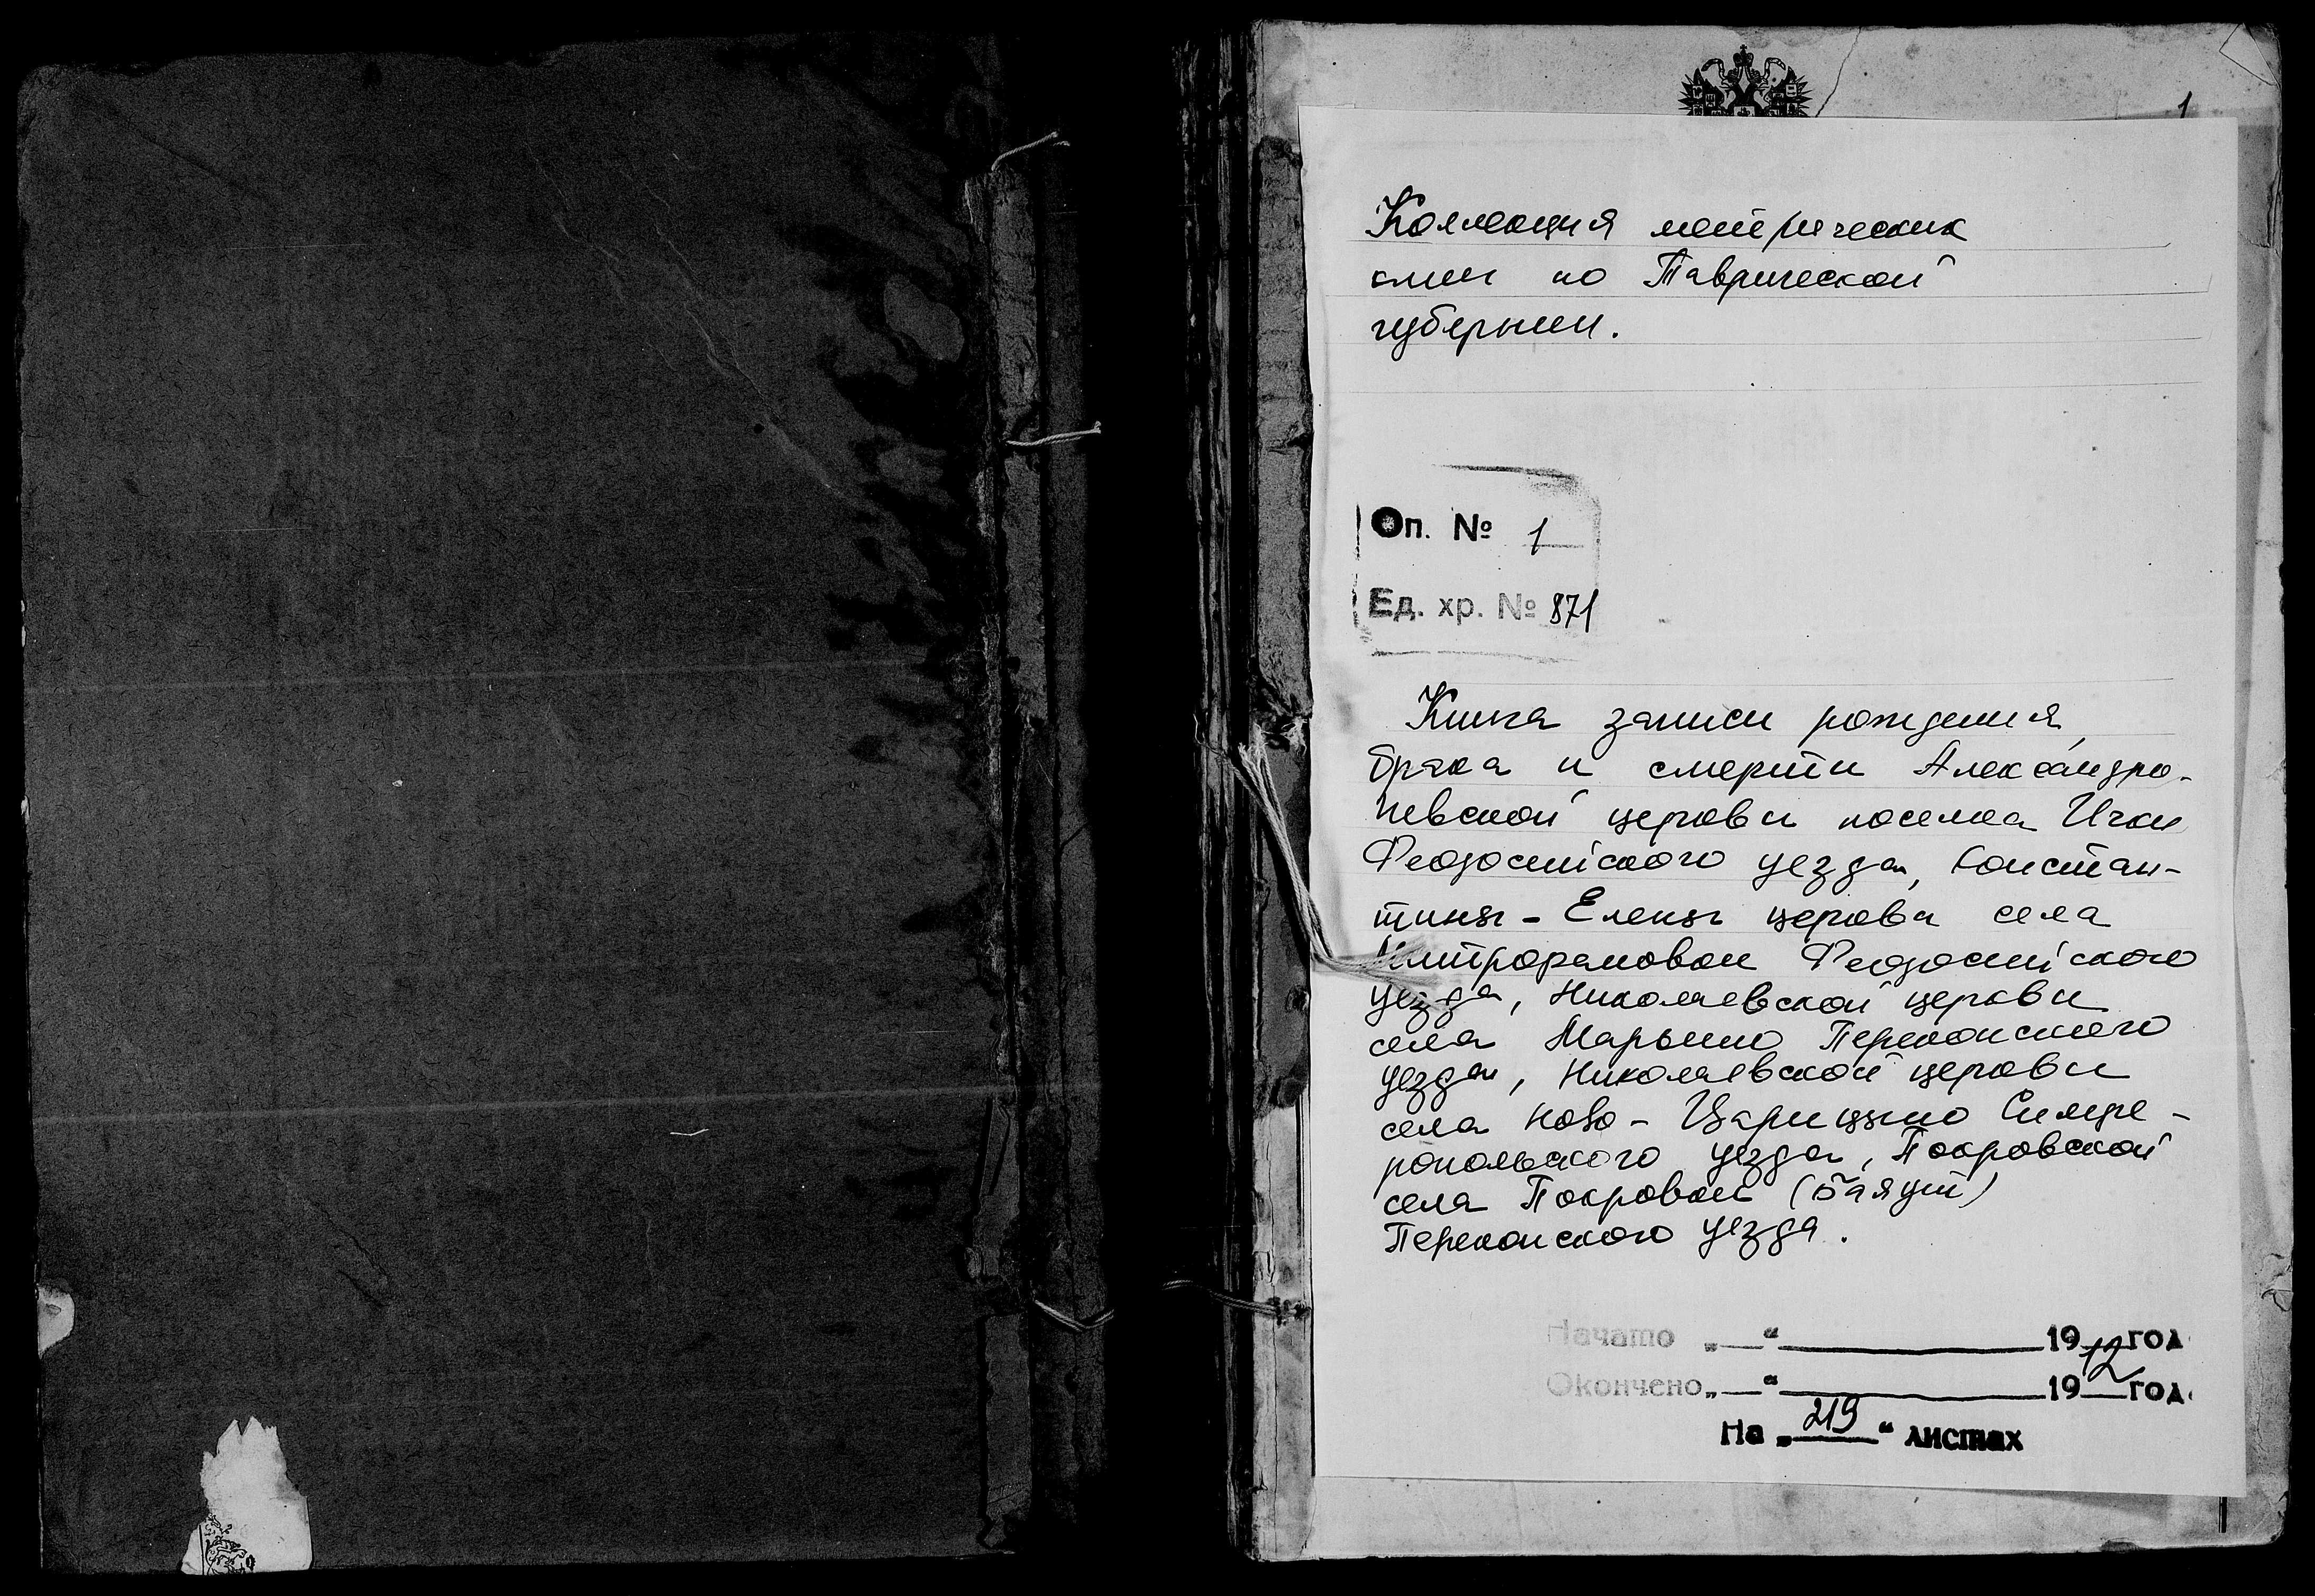 1
Коллекция метрических
книг по Таврической
губернии.
Оп. № 1
Ед. хр. № 871
Книга записи рождения,
брака и смерти Александро-
Невской церкви поселка Ички
Феодосийского уезда, Констан-
тины-Елены церкви села
Митрофановки Феодосийского
уезда, Николаевской церкви
села Марьино Перекопского
уезда, Николаевской церкви
села Ново-Царицыно Симфе-
ропольского уезда, Покровской
села Покровки (Баяут)
Перекопского уезда.
Начато „__“ ______ 1912 год
Окончено „__“ ______ 19__ год
На „219“ листах